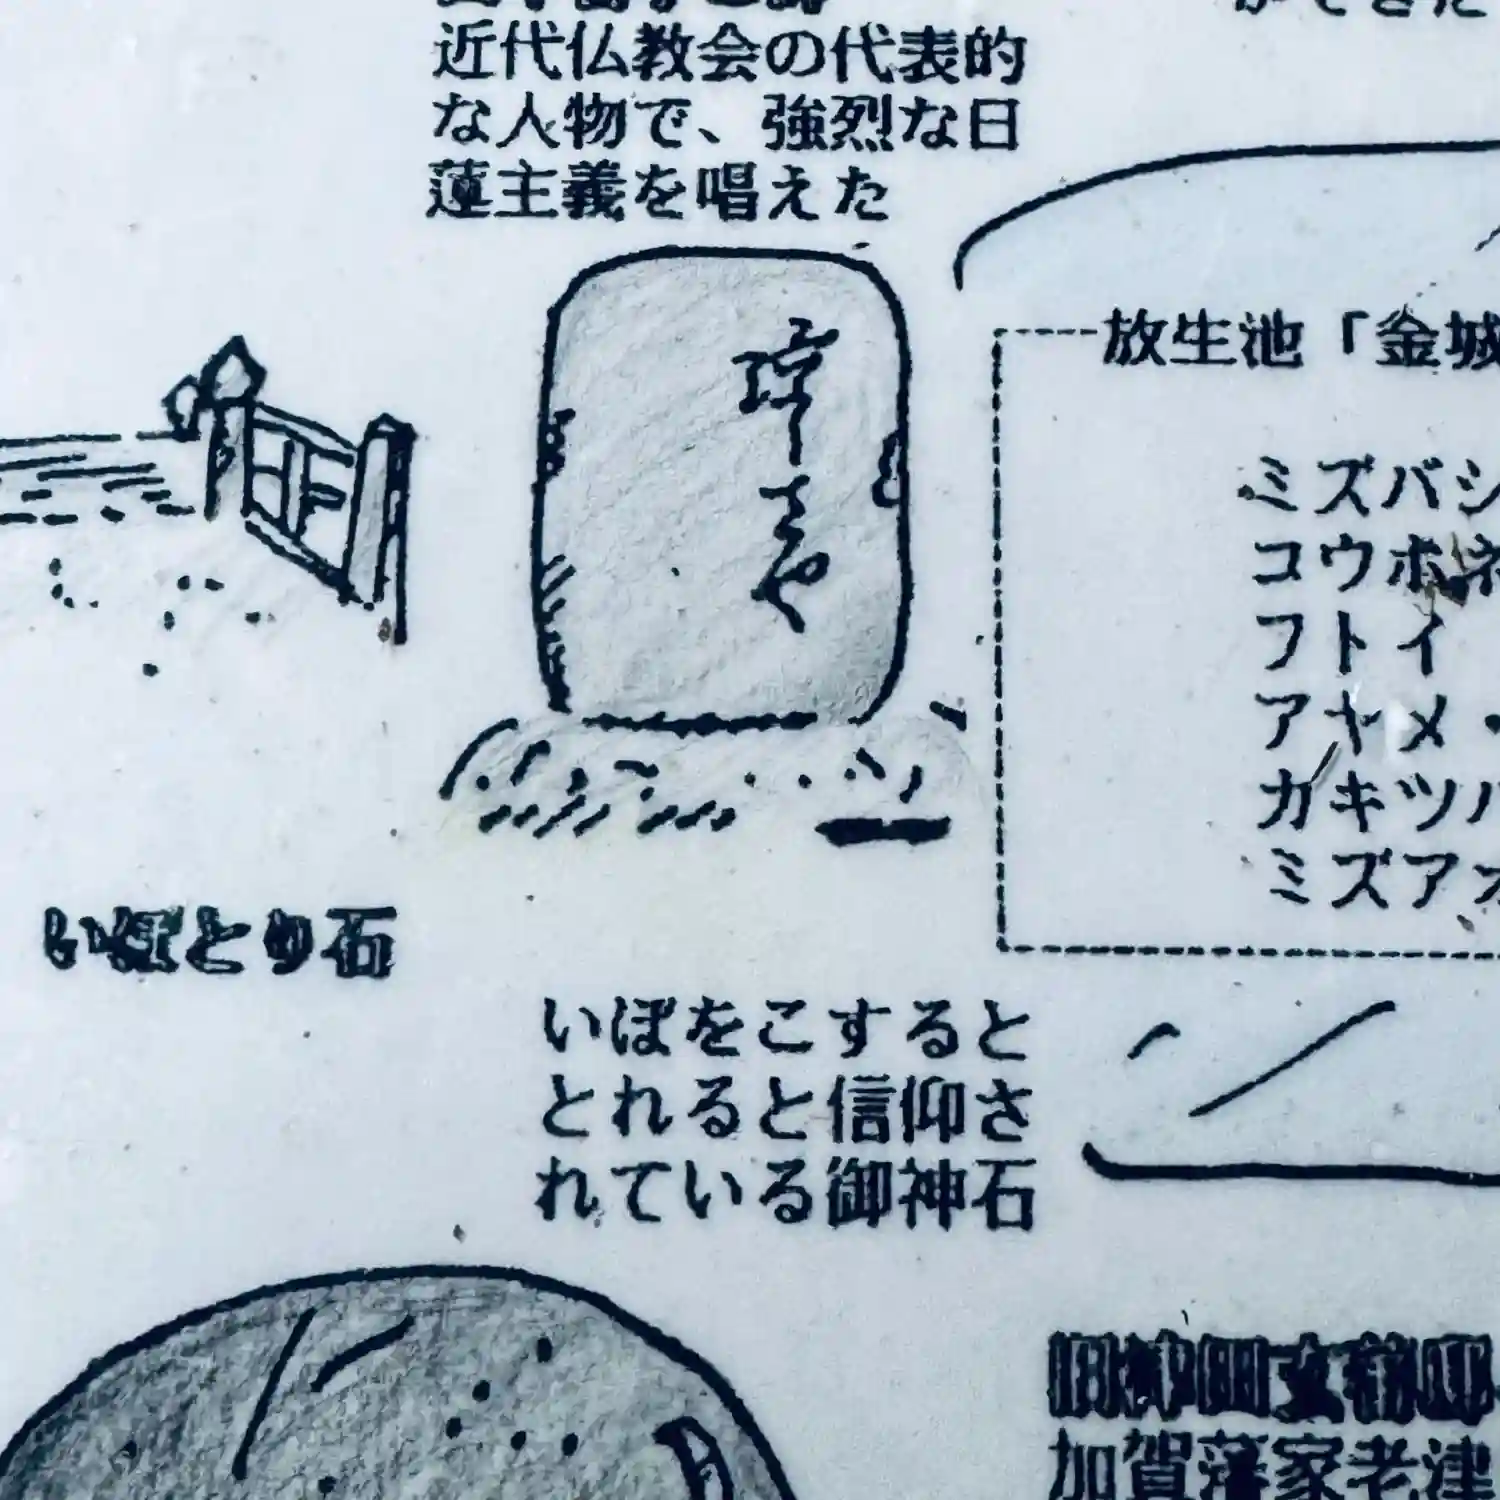 近代仏教会の代表的
な人物で、強烈な日
蓮主義を唱えた
放生池「金城
ミズバシ
コウホネ
フトイ
アヤメ・
カキツバ
ミズアオ
いぼとり石
いぼをこすると
とれると信仰さ
れている御神石
旧津田玄蕃邸
加賀藩家老津